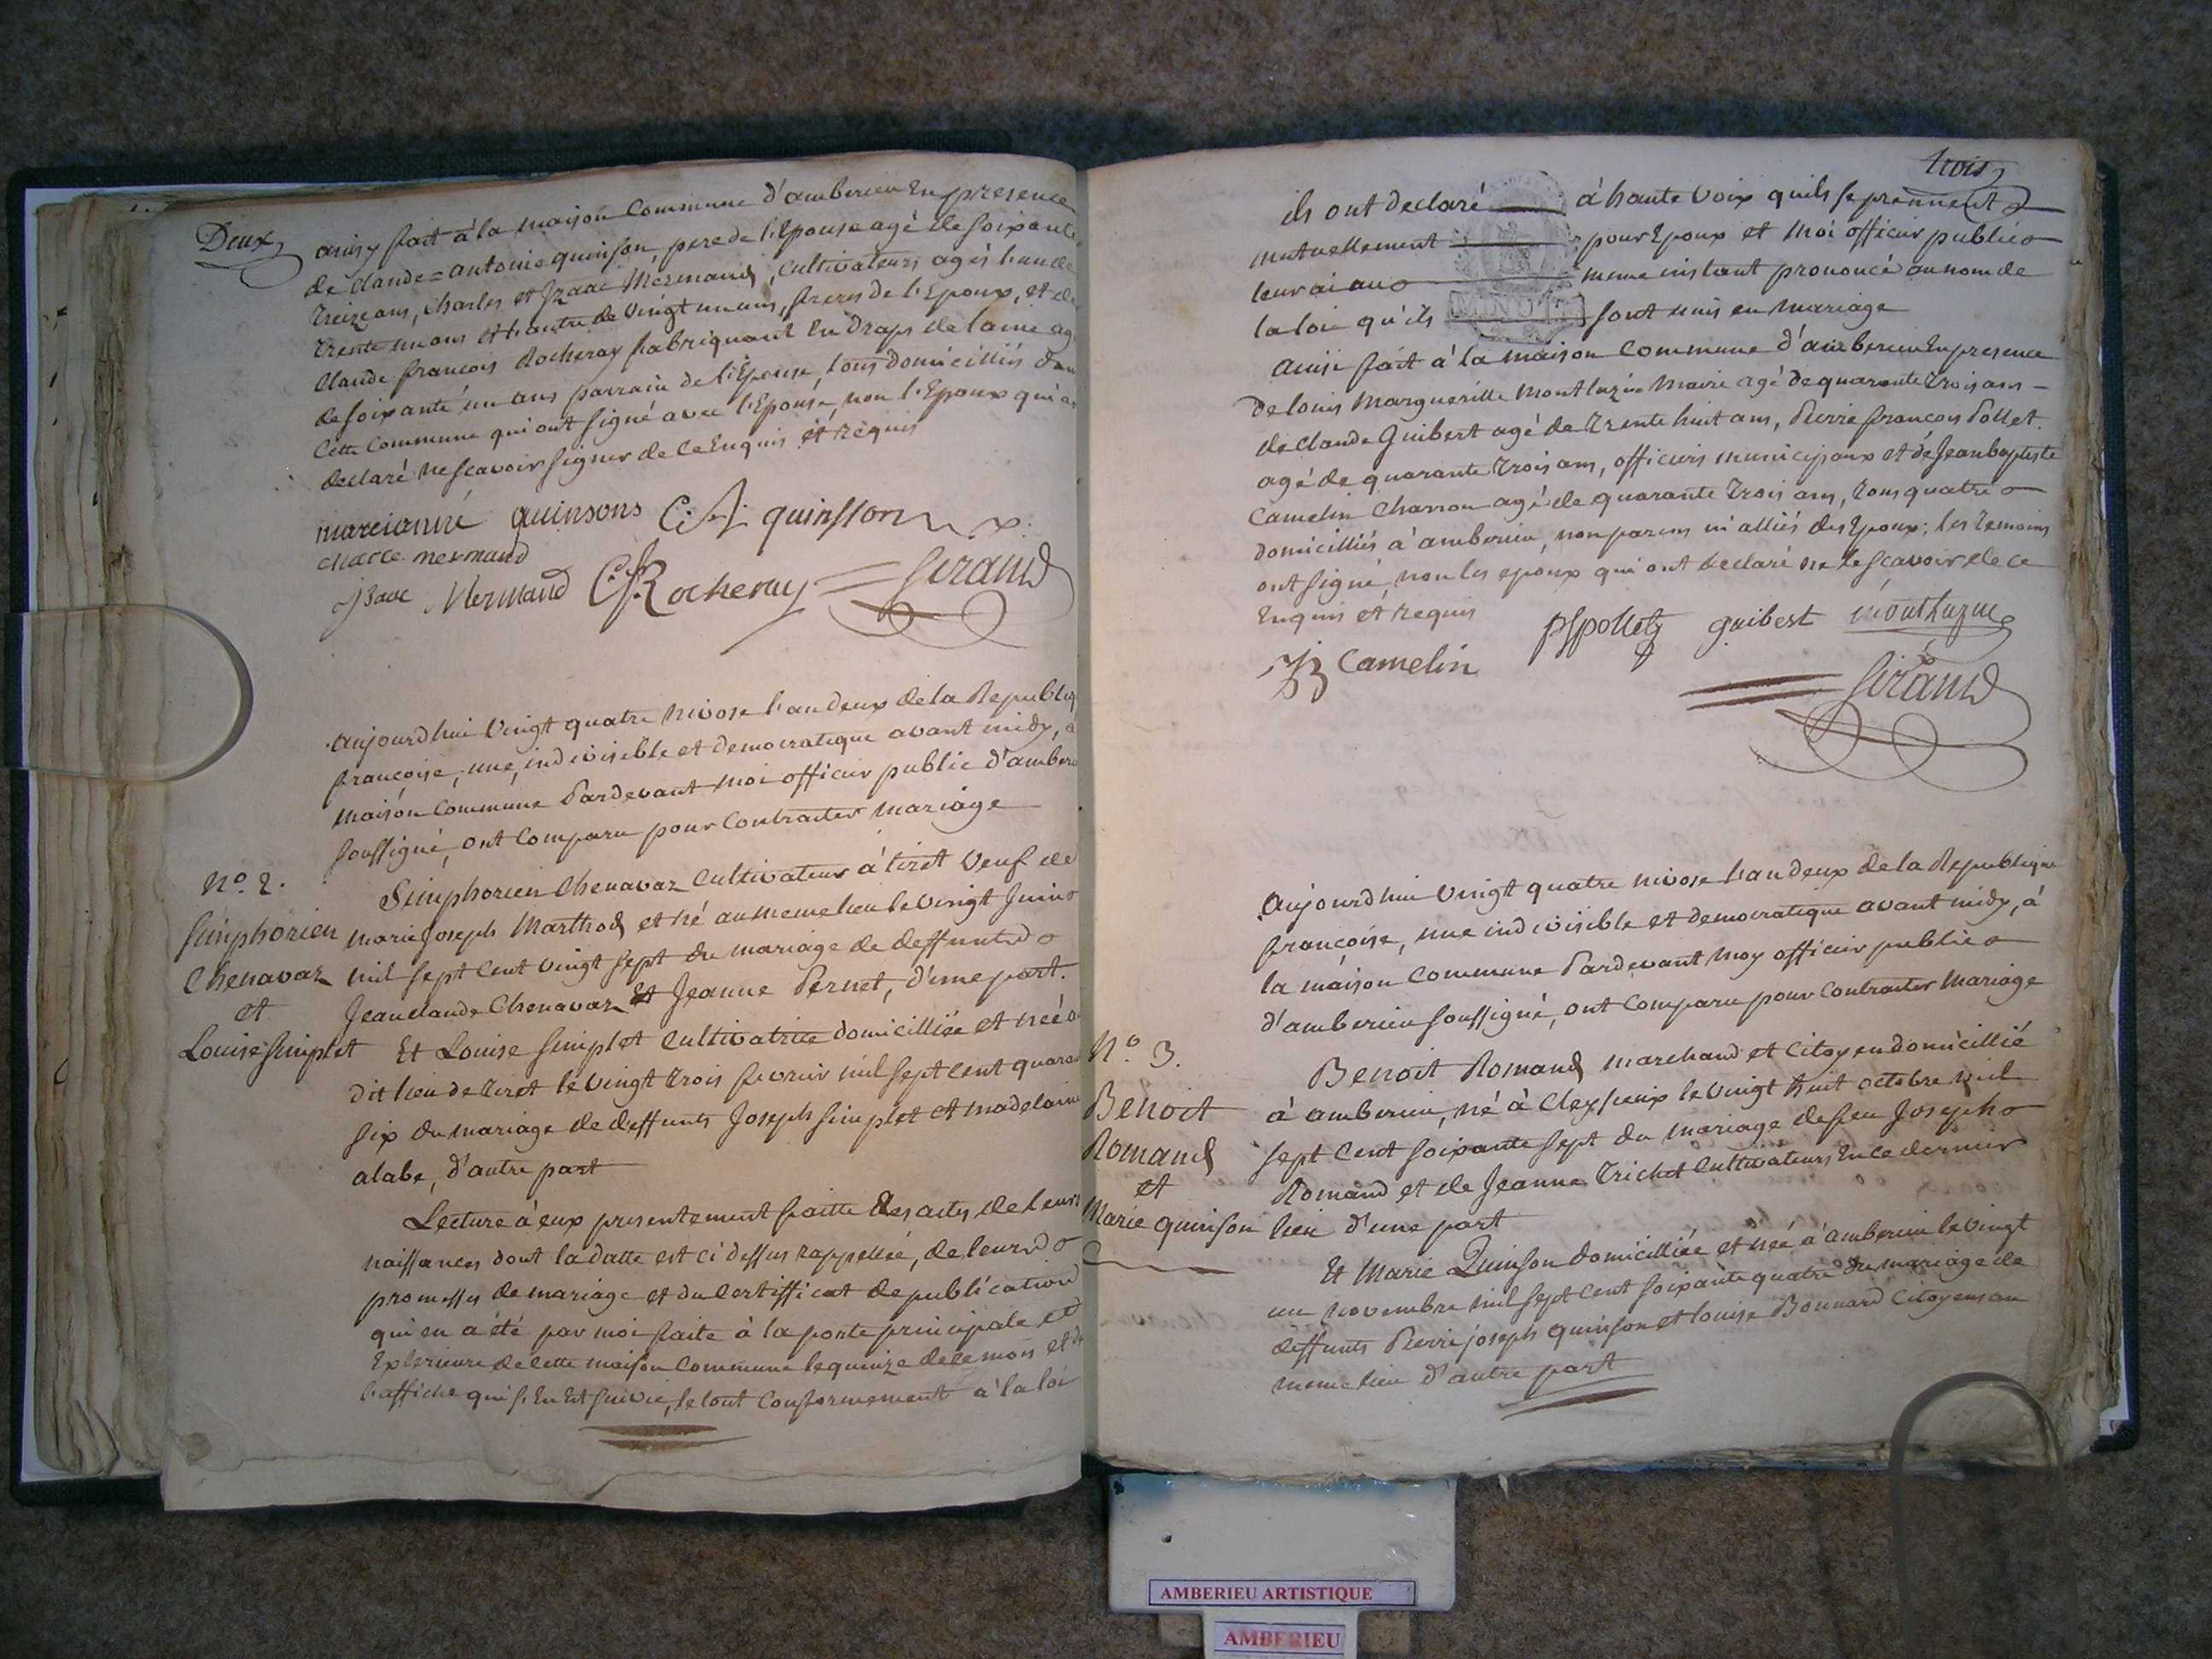 Deux
ainsy fait à la maison Commune d'amberieu En presence
de claude = antoine quinson, pere de l'Epouse agé de soixante
treize ans, Charles et Izaac Mermand, Cultivateurs agés l'un de
trente un ans et l'autre de vingt un ans, freres de l'Epoux, et de
Claude françois Rocheray fabriquant En draps de laine ag
de soixante un ans parrain de l'Epouse, tous domicilliés dan
Cette Commune qui ont signé avec l'Epouse, non l'Epoux qui a
declaré ne scavoir signer de ce Enquis et requis
marcianne quinsons C: A: quinsson
charle mermand
Isaac Mermand C.f. Rocheray Serand
Aujourdhui vingt quatre nivose l'an deux de la Republiq
françoise, une, indivisible et democratique avant midy, à
maison Commune Pardevant moi officier public d'amberi
soussigné, ont Comparu pour Contracter Mariage
N.º 2.
Simphorien
Chenavaz
et
Louise Simplet
Simphorien Chenavaz Cultivateur à tiret veuf de
marie Joseph Marthod et né au meme lieu le vingt Juin
mil sept Cent vingt sept du mariage de deffunts
Jean claude Chenavaz Et Jeanne Pernet, d'une part.
Et Louise Simplet Cultivatrice domicilliée et née a
dit lieu de tiret le vingt trois fevrier mil sept Cent quara
six du mariage de deffunts Joseph Simplet et madelaine
alabe, d'autre part
Lecture à eux presentement faitte des actes de leurs
naissances dont la datte est ci dessus rappellée, de leurs
promesses de mariage et du Certifficat de publication
qui en a été par moi faite à la porte principale et
Exterieure de cette maison Commune le quinze de ce mois et de
l'affiche qui s'En Est suivie, le tout Conformement à la loi
trois
ils ont declaré à haute voix quils se prennent
mutuellement pour Epoux et Moi officier public
leur ai au meme instant prononcé au nom de
la loi qu'ils sont unis en mariage
MINUTE
Ainsi fait à la maison Commune d'amberieu En presence
de louis Margueritte Montluzin Maire agé de quarante trois ans
de claude Guibert agé de trente huit ans, Pierre françois Pollet
agé de quarante trois ans, officiers municipaux et de Jean baptiste
Camelin Charron agé de quarante trois ans, tous quatre
domicilliés à amberieu, non parens ni alliés des Epoux; les temoins
ont signé, non les epoux qui ont declaré ne le scavoir de ce
Enquis et requis
pf pollet guibert
JB Camelin
Serand
Aujourdhui vingt quatre nivose l'an deux de la Republique
françoise, une indivisible et democratique avant midy, à
la maison Commune Pardevant moy officier public
d'amberieu soussigné, ont Comparu pour Contracter Mariage
N.º 3.
Benoit
Romand
et
Marie quinson
Benoit Romand marchand et Citoyen domicillié
à amberieu, né à Cleyzieux le vingt huit octobre mil
sept Cent soixante sept du mariage de feu Joseph
Romand et de Jeanne trichet Cultivateurs En ce dernier
lieu d'une part
Et Marie Quinson domicilliée et née à amberieu le vingt
un novembre mil sept Cent soixante quatre du mariage de
deffunts Pierre joseph quinson et louise Bonnard Citoyens au
meme lieu d'autre part
AMBERIEU ARTISTIQUE
AMBERIEU